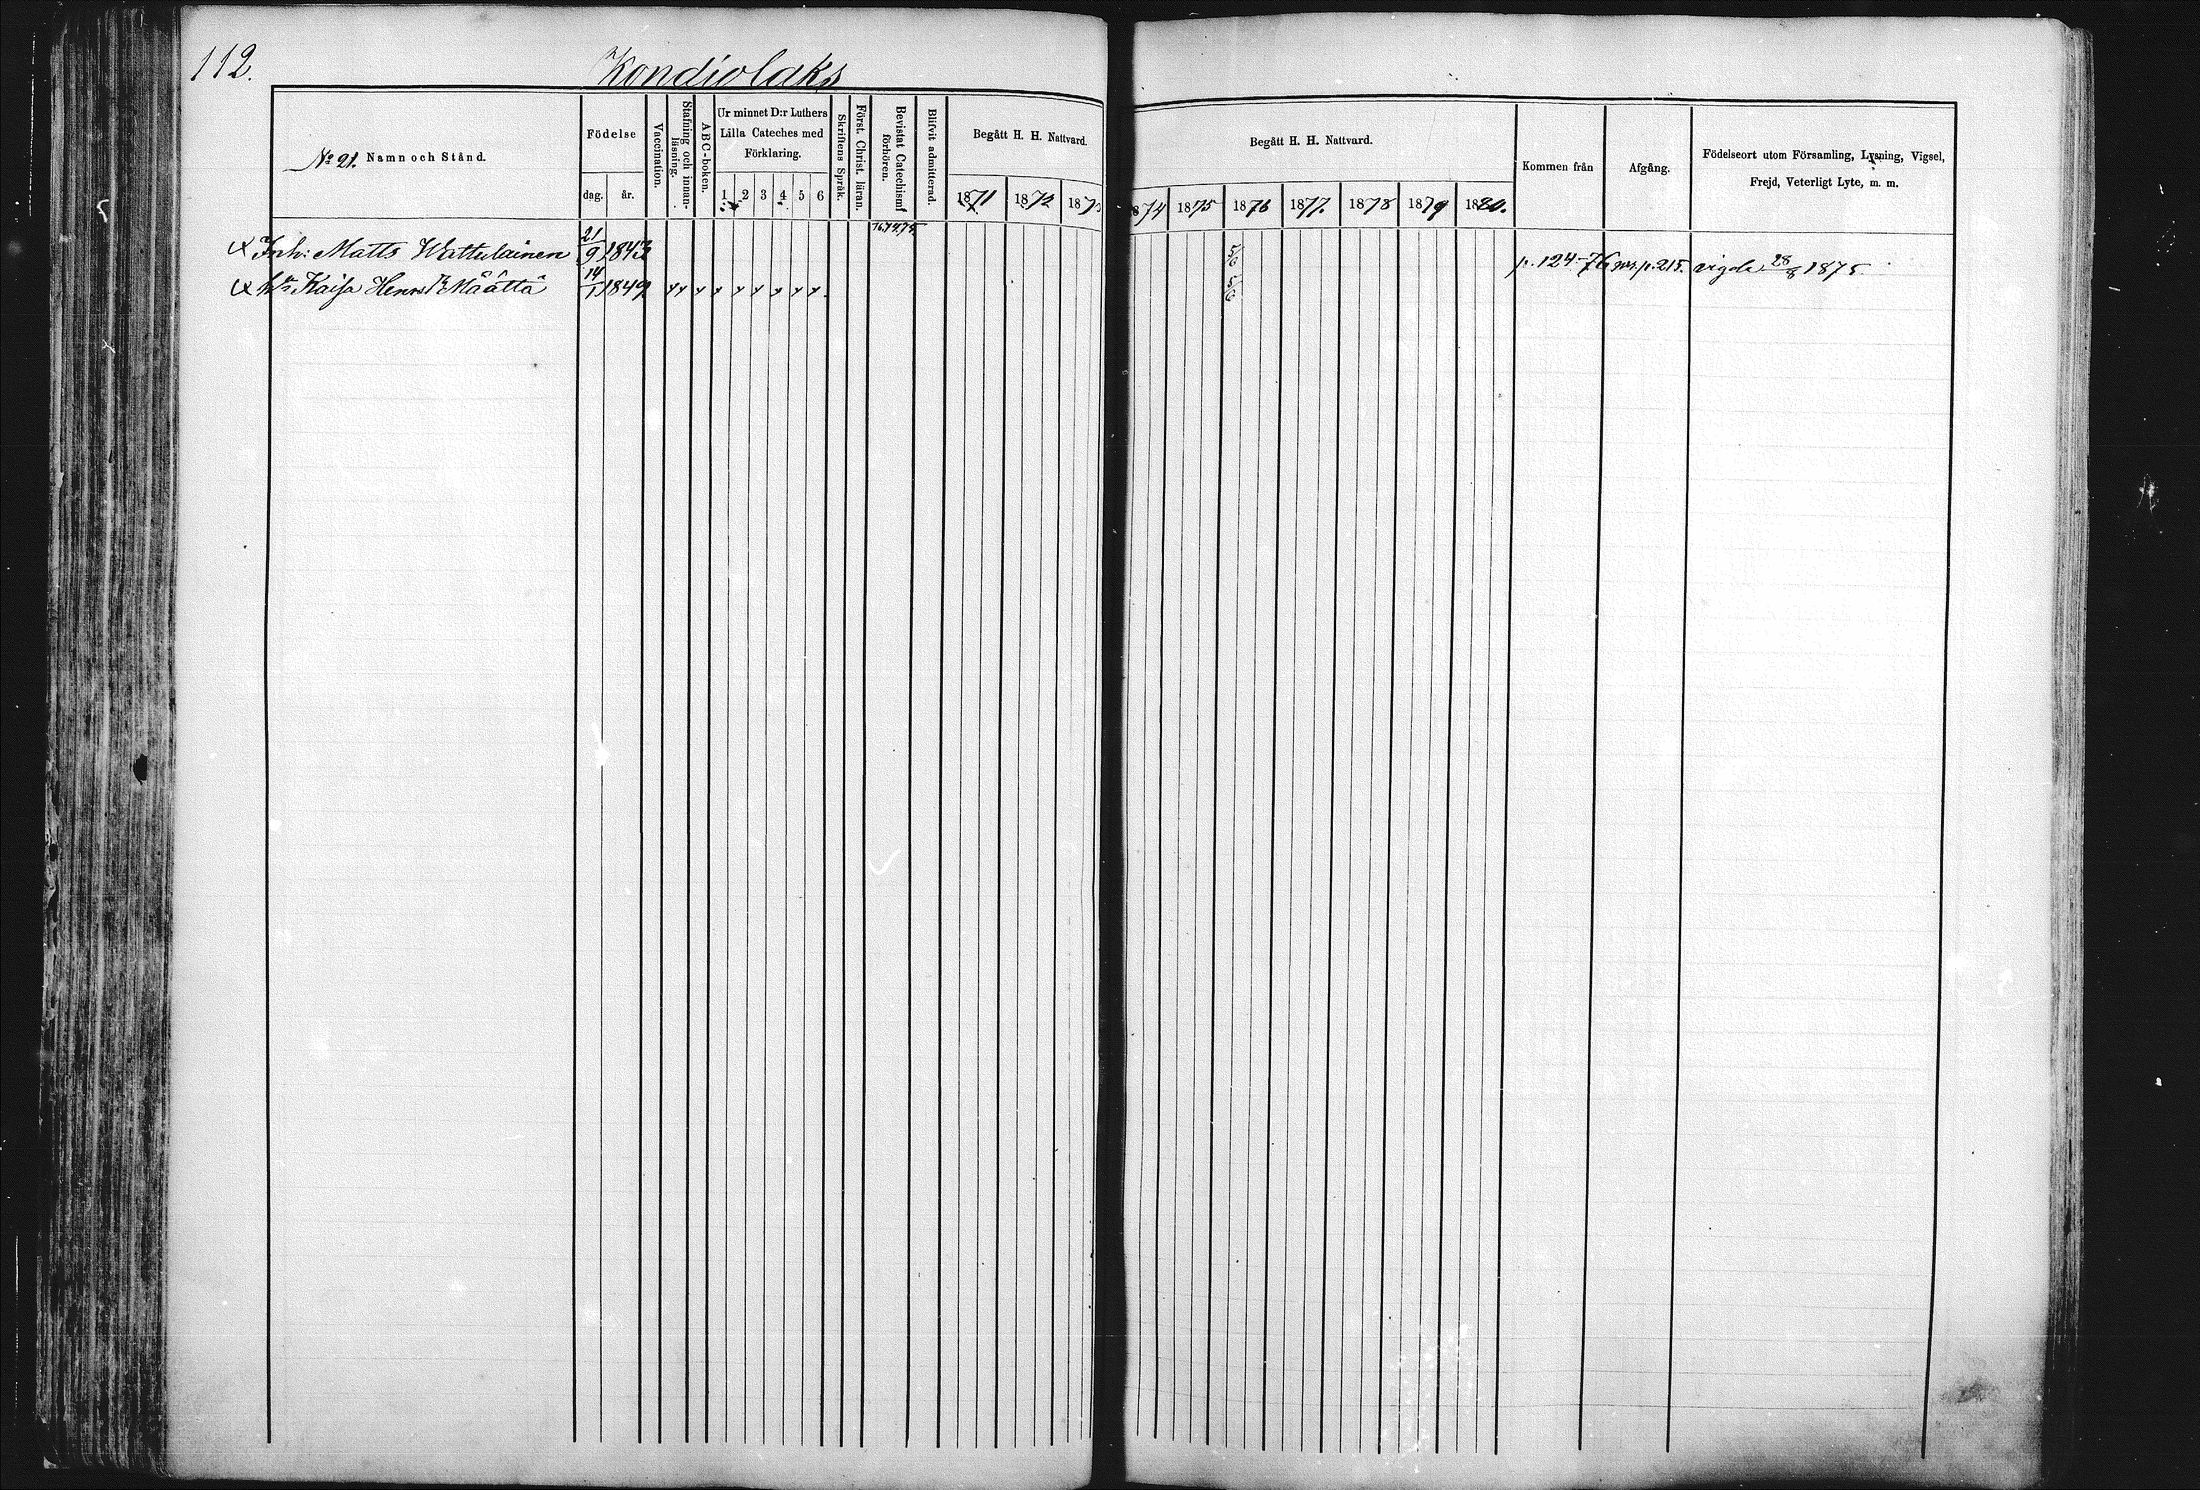 112.
Kondiolaks
№ 21. Namn och Stånd.
Födelse
dag. år.
Vaccination.
Stafning och innan-
läsning.
ABC-boken.
Ur minnet D:r Luthers
Lilla Cateches med
Förklaring.
1 2 3 4 5 6
Skriftens Språk.
Först. Christ. läran.
Bevistat Catechismi
förhören.
Blifvit admitterad.
Begått H. H. Nattvard.
1871 1872 1873
Begått H. H. Nattvard.
1874 1875 1876 1877. 1878 1879 1880.
Kommen från
Afgång.
Födelseort utom Församling, Lysning, Vigsel,
Frejd, Veterligt Lyte, m. m.
Inh: Matts Wattulainen 21/9 1843 5/6 p. 124-76 p. 215. vigde 28/8 1875.
Kaisa Henrs Dr Määttä 14/1 1849 5/6